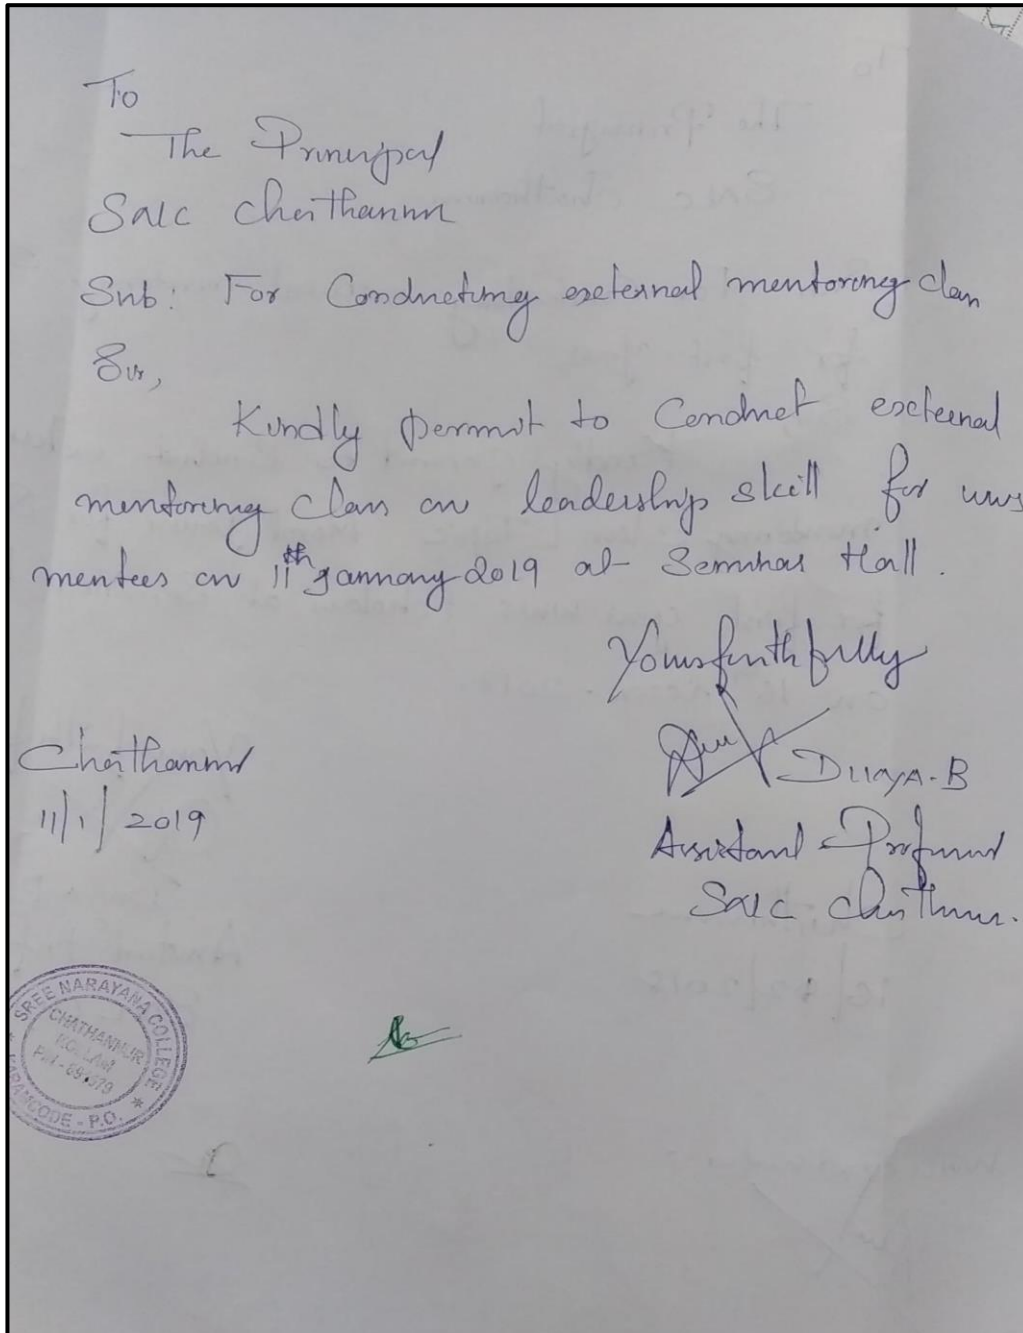 To
The Principal
SNC Chathannur
Sub: For Conducting external mentoring class
Sir,
Kindly permit to Conduct external
mentoring class on leadership skill for
mentees on 11th January 2019 at Seminar Hall.
Yours faithfully
Chathannur
DIVYA.B
11/1/2019
Assistant Professor
SNC Chathannur.
SREE NARAYANA COLLEGE
CHATHANNUR
KOLLAM
KARAMCODE - P.O.